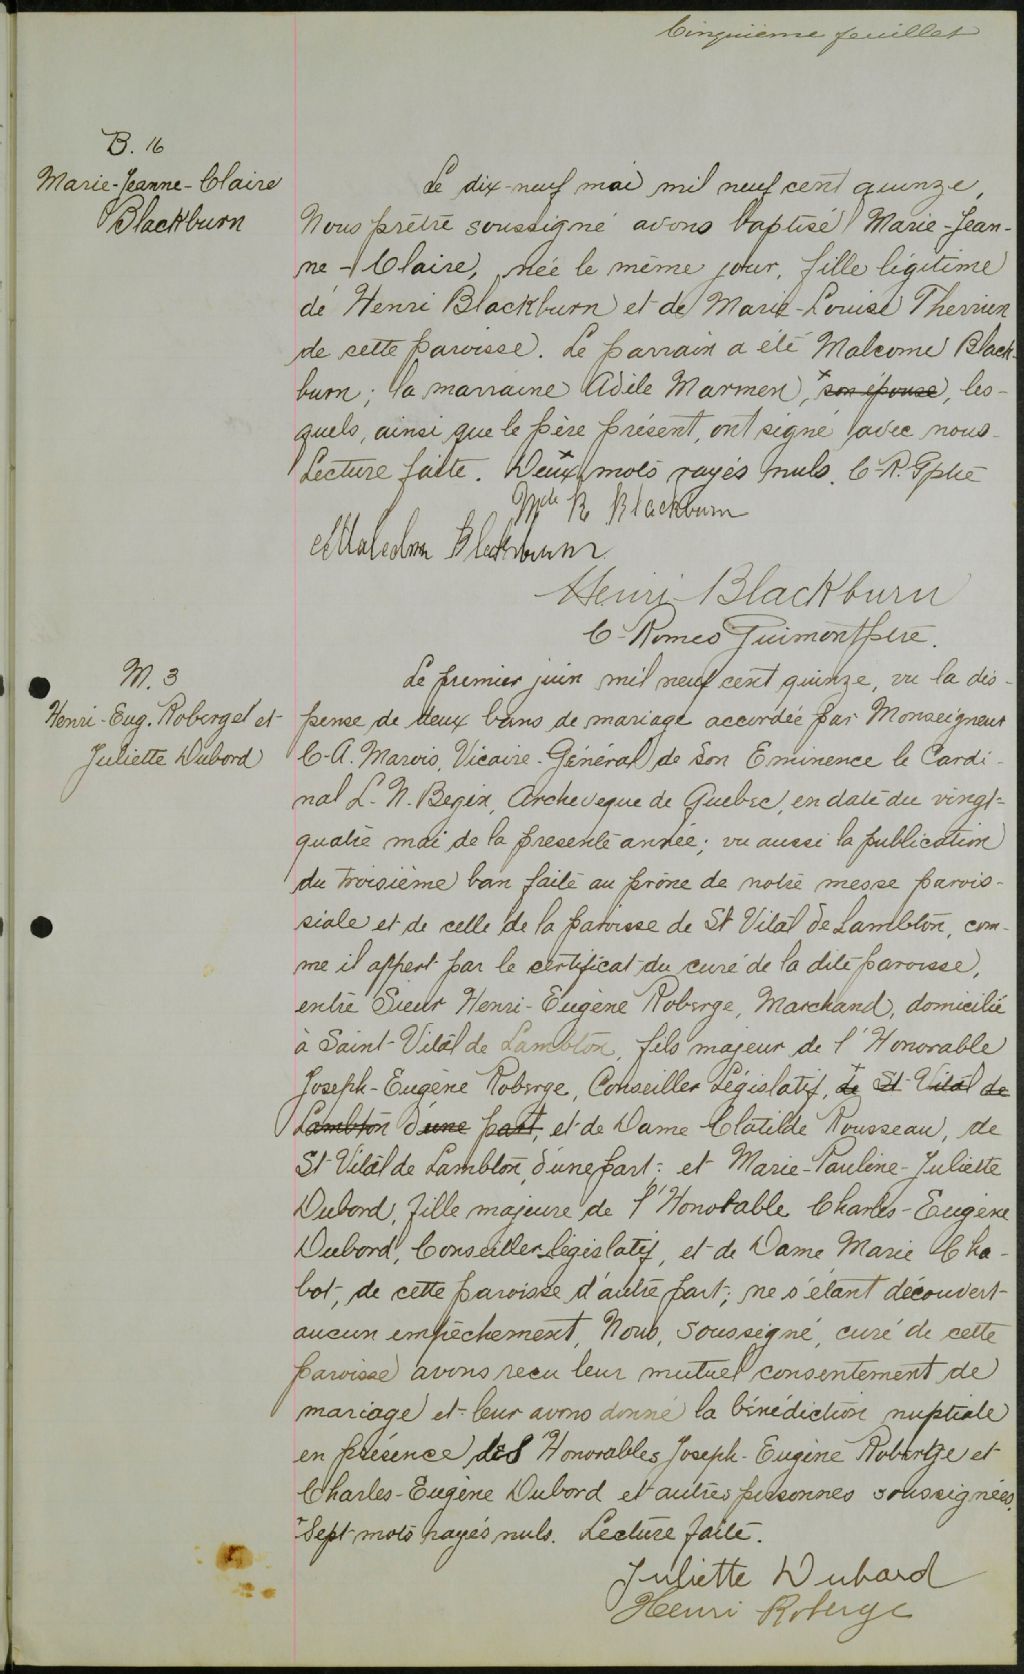 Cinquième feuillet
B. 16
Marie-Jeanne-Claire
Blackburn
Le dix-neuf mai mil neuf cent quinze,
Nous prêtre soussigné avons baptisé Marie-Jean-
ne-Claire, née le même jour, fille légitime
de Henri Blackburn et de Marie-Louise Therrien
de cette paroisse. Le parrain a été Malcome Black-
burn; la marraine Adèle Marmen, x son épouse, les-
quels, ainsi que le père présent, ont signé avec nous.
Lecture faite. x Deux mots rayés nuls. C-R. G ptre
Mde R Blackburn
Malcolm Blackburn
Henri Blackburn
C-Romeo Guimont ptre.
M. 3
Henri-Eug. Roberge et
Juliette Dubord
Le premier juin mil neuf cent quinze, vu la dis-
pense de deux bans de mariage accordée par Monseigneur
C-A. Marois, Vicaire-Général de Son Eminence le Cardi-
nal L. N. Begin, Archevêque de Québec, en date du vingt-
quatre mai de la présente année; vu aussi la publication
du troisième ban faite au prône de notre messe parois-
siale et de celle de la paroisse de St Vital de Lambton, com-
me il appert par le certificat du curé de la dite paroisse,
entre Sieur Henri-Eugène Roberge, Marchand, domicilié
à Saint-Vital de Lambton, fils majeur de l'Honorable
Joseph-Eugène Roberge, Conseiller Législatif, de St Vital de
Lambton d'une part, et de Dame Clotilde Rousseau, de
St Vital de Lambton, d'une part: et Marie-Pauline-Juliette
Dubord, fille majeure de l'Honorable Charles-Eugène
Dubord, Conseiller législatif, et de Dame Marie Cha-
bot, de cette paroisse d'autre part; ne s'étant découvert
aucun empêchement, Nous, soussigné, curé de cette
paroisse avons reçu leur mutuel consentement de
mariage et leur avons donné la bénédiction nuptiale
en présence des Honorables Joseph-Eugène Roberge et
Charles-Eugène Dubord et autres personnes soussignées.
Sept mots rayés nuls. Lecture faite.
Juliette Dubord
Henri Roberge